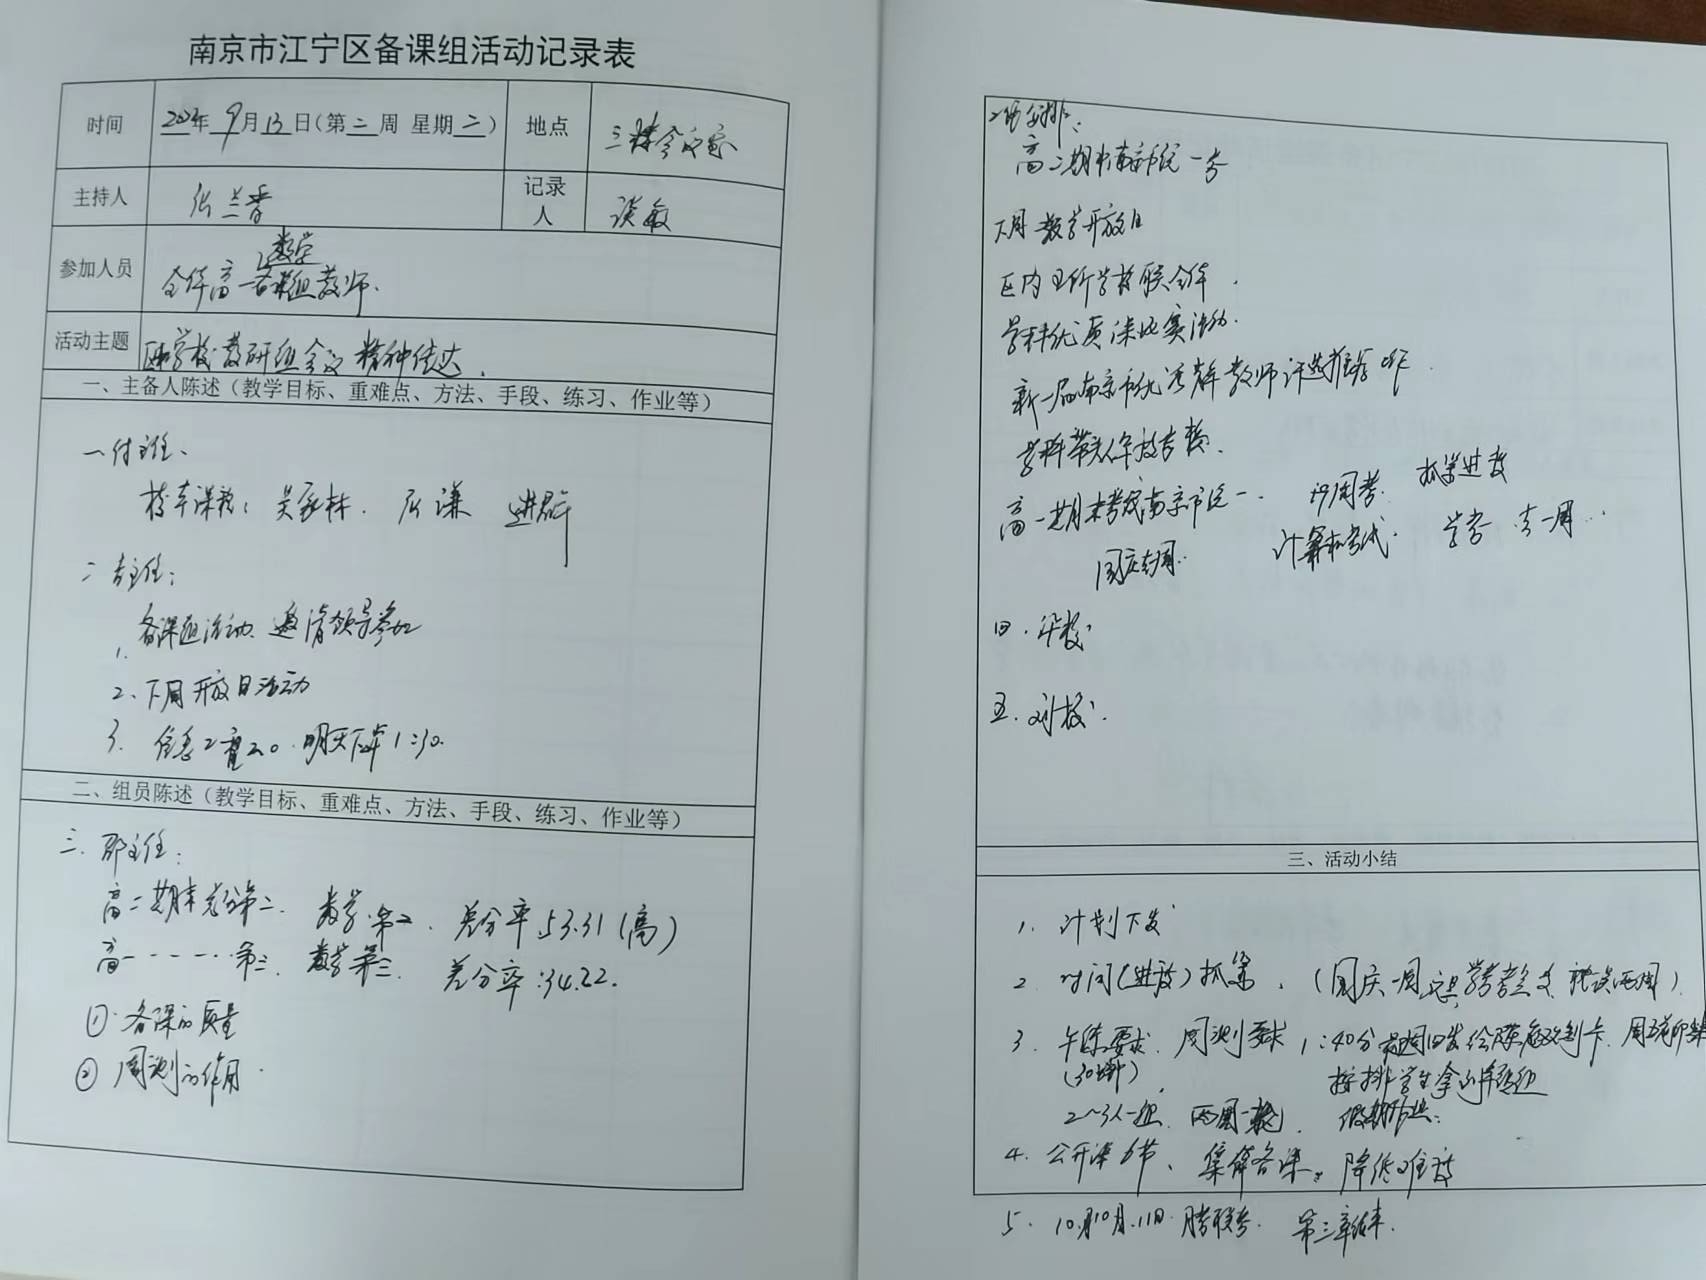 南京市江宁区备课组活动记录表
时间 2022年 9月 13日(第二周 星期二) 地点 三楼会议室
主持人 张兰香 记录人 谈敏
参加人员 全体高一数学备课组教师.
活动主题 学校教研组会议精神传达.
一、主备人陈述（教学目标、重难点、方法、手段、练习、作业等）
一 付主任、
校本课程: 吴 谦 进群
二 主任:
1. 备课组活动、邀请领导参加
2、下周开放日活动
3. 信息 2.0. 明天下午1:30.
二、组员陈述（教学目标、重难点、方法、手段、练习、作业等）
三. 主任:
高二期末 第二. 数学第二. 差分率:53.31(高)
高一 - - - - - 第三. 数学第三. 差分率:34.22.
① 备课的质量
② 周测的作用.
工作安排:
高二期中南京市统一考
下周教学开放日
区内 所学校联合体.
学科优质课比赛活动.
新一届南京市优秀青年教师评选推荐工作.
学科带头人年度考核.
高一期末考试南京市统一. 周考. 抓紧进度
国庆 周.. 计算机考试. 学考 考一周...
四. 校:
五. 刘校:
三、活动小结
1. 计划下发
2. 时间(进度)抓紧. (国庆一周 学考 耽误两周).
3. 午练要求. 周测要求 1:40分 周日发给 制卡. 周五前印
(30分钟) 安排学生拿到年级组
2~3人一组. 两周一 . 假期作业:
4. 公开课6节、集体备课. 降低难度
5. 10月10日.11日. 月考联考. 第三章结束.